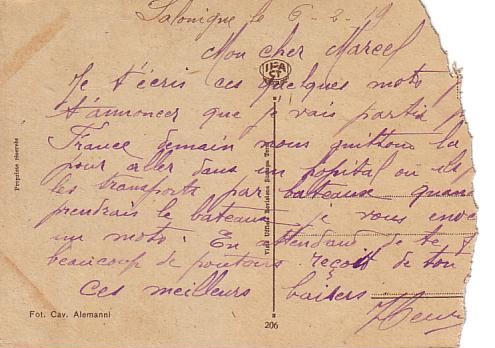 Salonique le 6-2-19
Mon cher Marcel
Je t'écris ces quelques mots
t'annoncer que je vais partir p
France demain nous quittons la
pour aller dans un hopital ou ils
les transports par bateaux quand
prendrais le bateau je vous enve
un mots. En attendant de te
beaucoup de poutous reçoit de ton
Ces meilleurs baisers
Henri
Propriété réservée
Visto Uffici Revisione Stampa
Fot. Cav. Alemanni
206